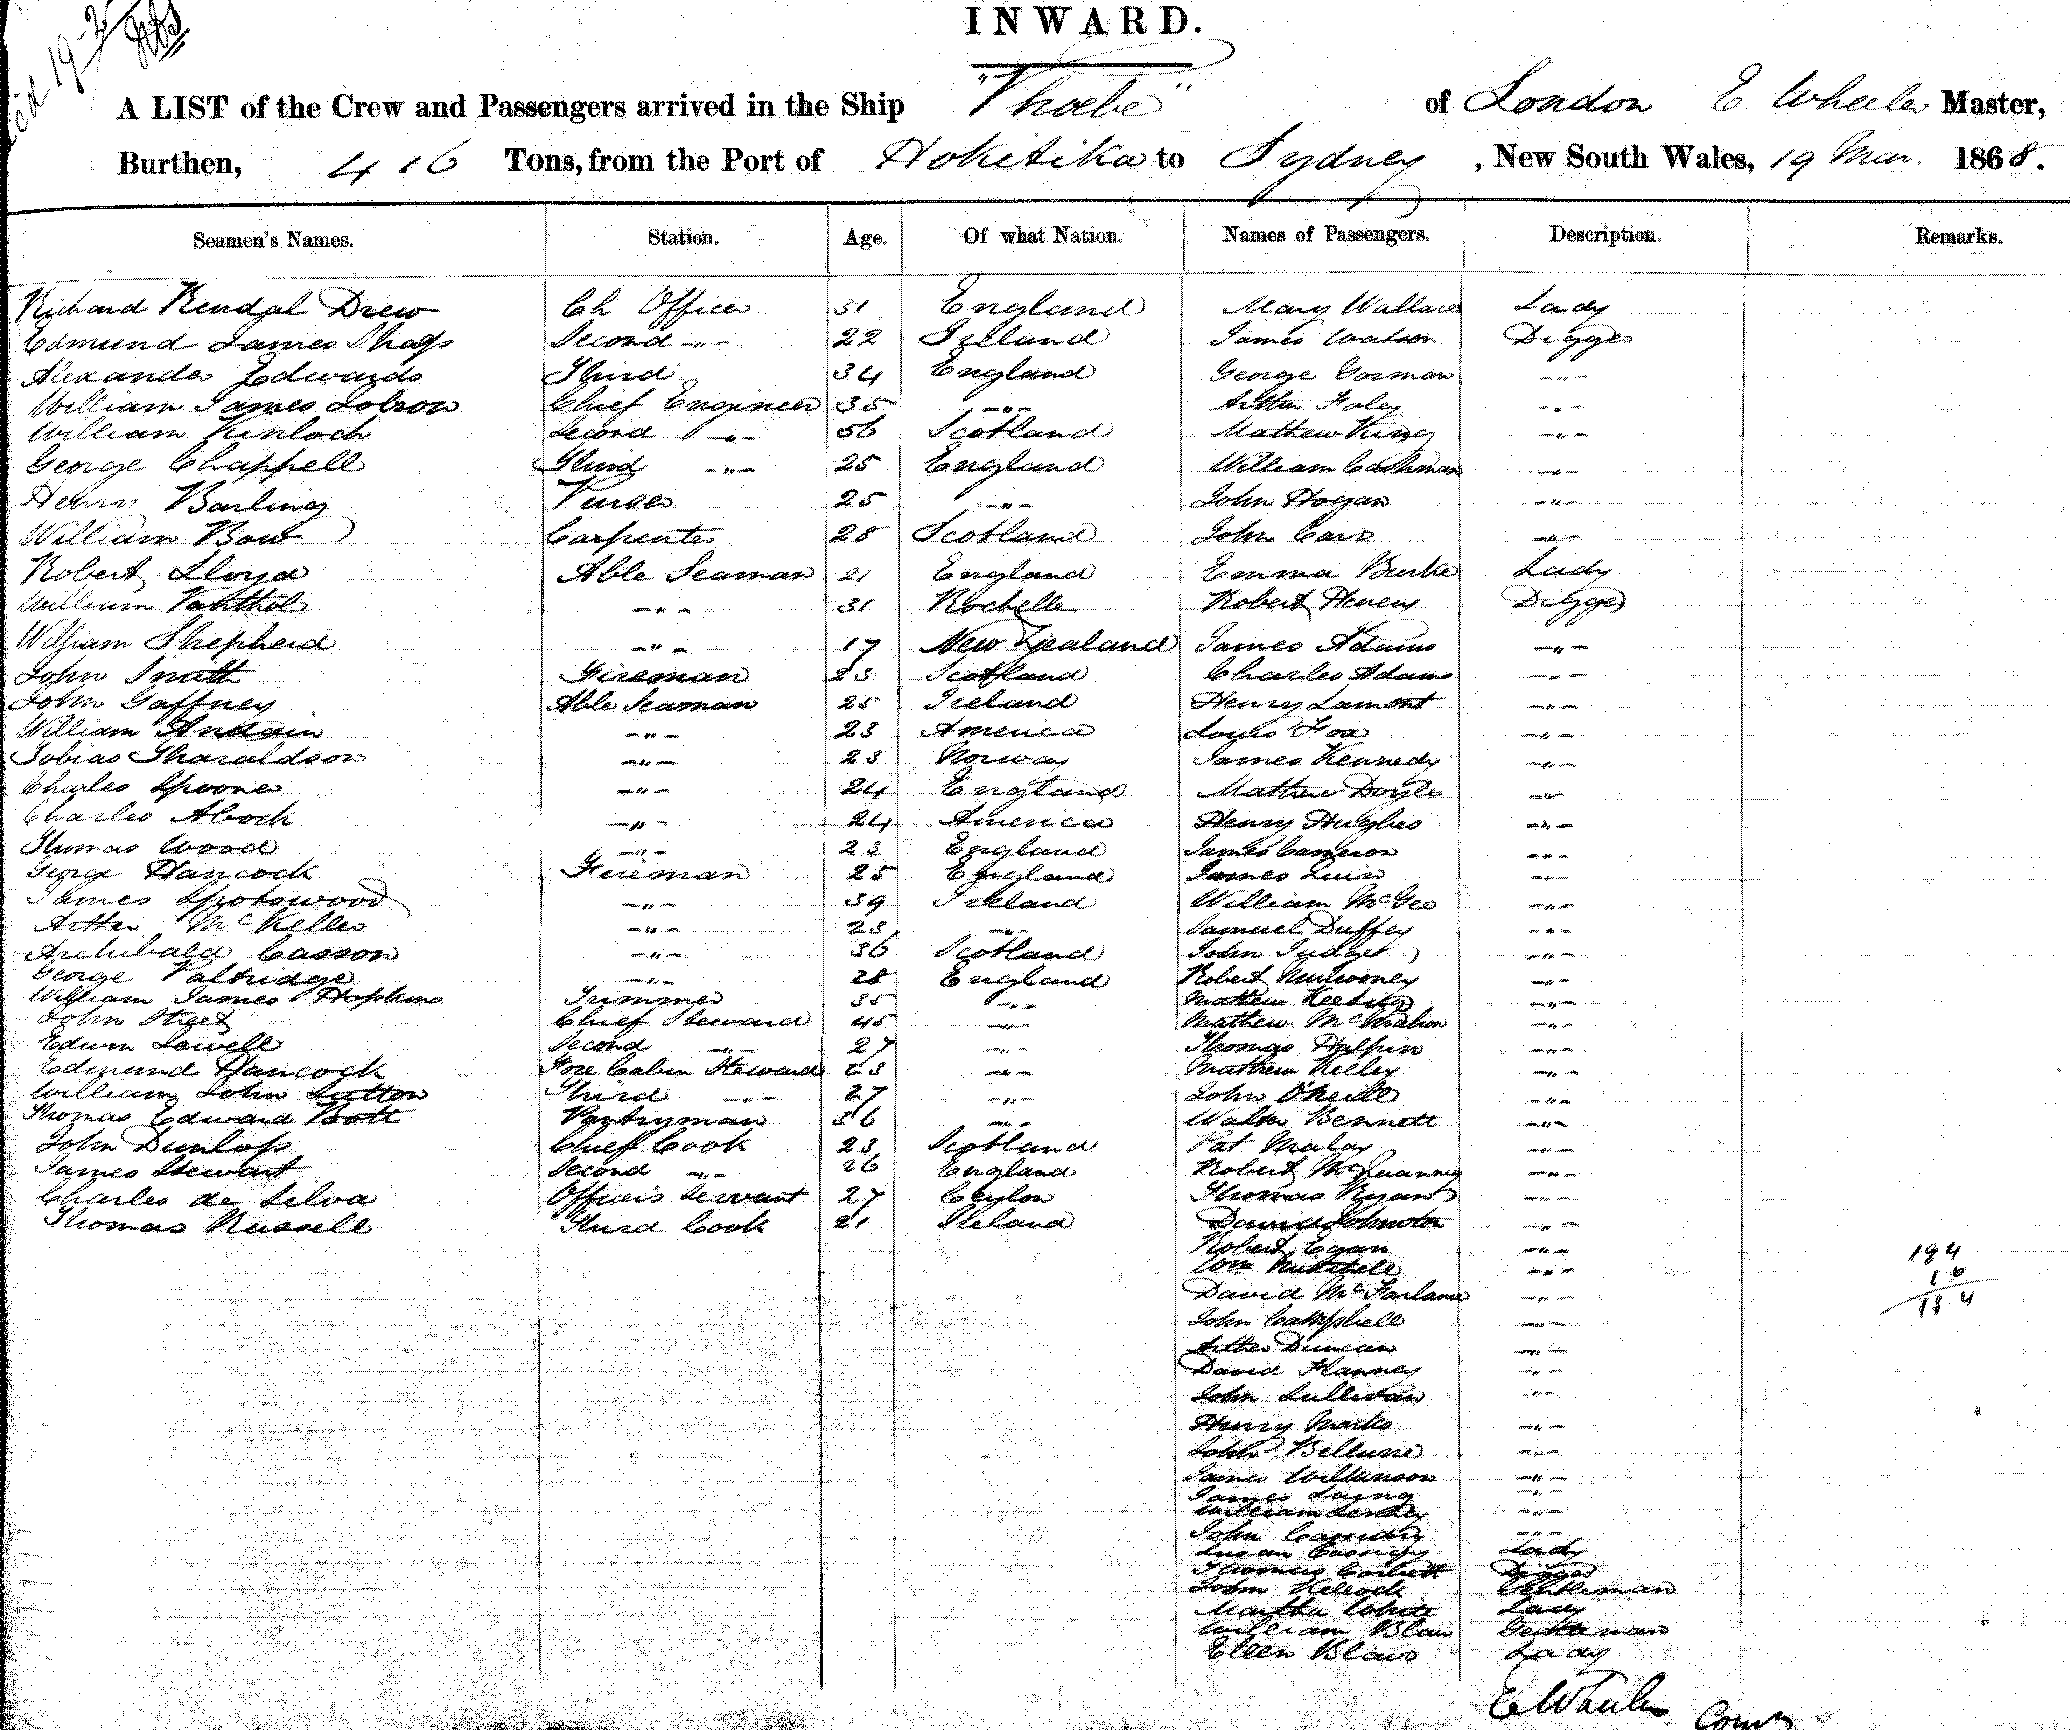 INWARD.
A LIST of the Crew and Passengers arrived in the Ship "Phoebe" of London E Wheeler Master,
Burthen, 416 Tons, from the Port of Hokitika to Sydney, New South Wales, 19 Mar. 1868.
Seamen's Names. Station. Age. Of what Nation. Names of Passengers. Description. Remarks.
Richard Kendal Drew Ch Officer 31 England Mary Wallace Lady
Edmund James Second -"- 22 Ireland James Watson Digger
Alexander Edwards Third 34 England George Gorman -"-
William James Chief Engineer 35 -"- Arthur Foley -"-
William Kinloch Second -"- 56 Scotland Mathew King -"-
George Chappell Third -"- 25 England William Cashman -"-
Henry Barling Purser 25 -"- John Hogan -"-
William Bow Carpenter 28 Scotland John Carr -"-
Robert Lloyd Able Seaman 21 England Emma Burke Lady
William -"- 31 Rochelle Robert Digger
William Shepherd -"- 17 New Zealand James Adams -"-
John Fireman 23 Scotland Charles Adams -"-
John Gaffney Able Seaman 25 Ireland Henry Lamont -"-
William -"- 23 America Fox -"-
Tobias Tharaldson -"- 23 Norway James Kennedy -"-
Charles Spooner -"- 24 England Mathew Doyle -"-
Charles Alcock -"- 24 America Henry Hughes -"-
Thomas Wood -"- 23 England James Cameron -"-
George Hancock Fireman 25 England James -"-
James Spotswood -"- 39 Ireland William McGee -"-
Arthur McKeller -"- 23 -"- Samuel Duffey -"-
Archibald Casson -"- 36 Scotland John -"-
George -"- 28 England Robert -"-
William James Hopkins Trimmer 35 -"- Mathew Keeting -"-
John Street Chief Steward 45 -"- Mathew -"-
Edwin Sawell Second -"- 27 -"- Thomas Halpin -"-
Edmund Hancock Fore Cabin Steward 23 -"- Mathew Kelley -"-
William John Sutton Third -"- 27 -"- John O'Neille -"-
Thomas Edward Bott Pantryman 36 -"- Walter Bennett -"-
John Dunlop Chief Cook 23 Scotland Pat -"-
James Stewart Second -"- 26 England Robert -"-
Charles de Silva Officers Servant 27 Ceylon Thomas Ryan -"-
Thomas Russell Third Cook 21 Ireland Johnston -"-
Robert Egan -"-
-"-
David McFarland -"-
John Campbell -"-
Arthur Duncan -"-
David Flanney -"-
John Sullivan -"-
Henry Marks -"-
John -"-
James Wilkinson -"-
James Laing -"-
William -"-
John -"-
Susan Lady
Thomas Corbett Digger
John Gentleman
Martha White Lady
William Blair Gentleman
Ellen Blair Lady
194
10
184
E Wheeler